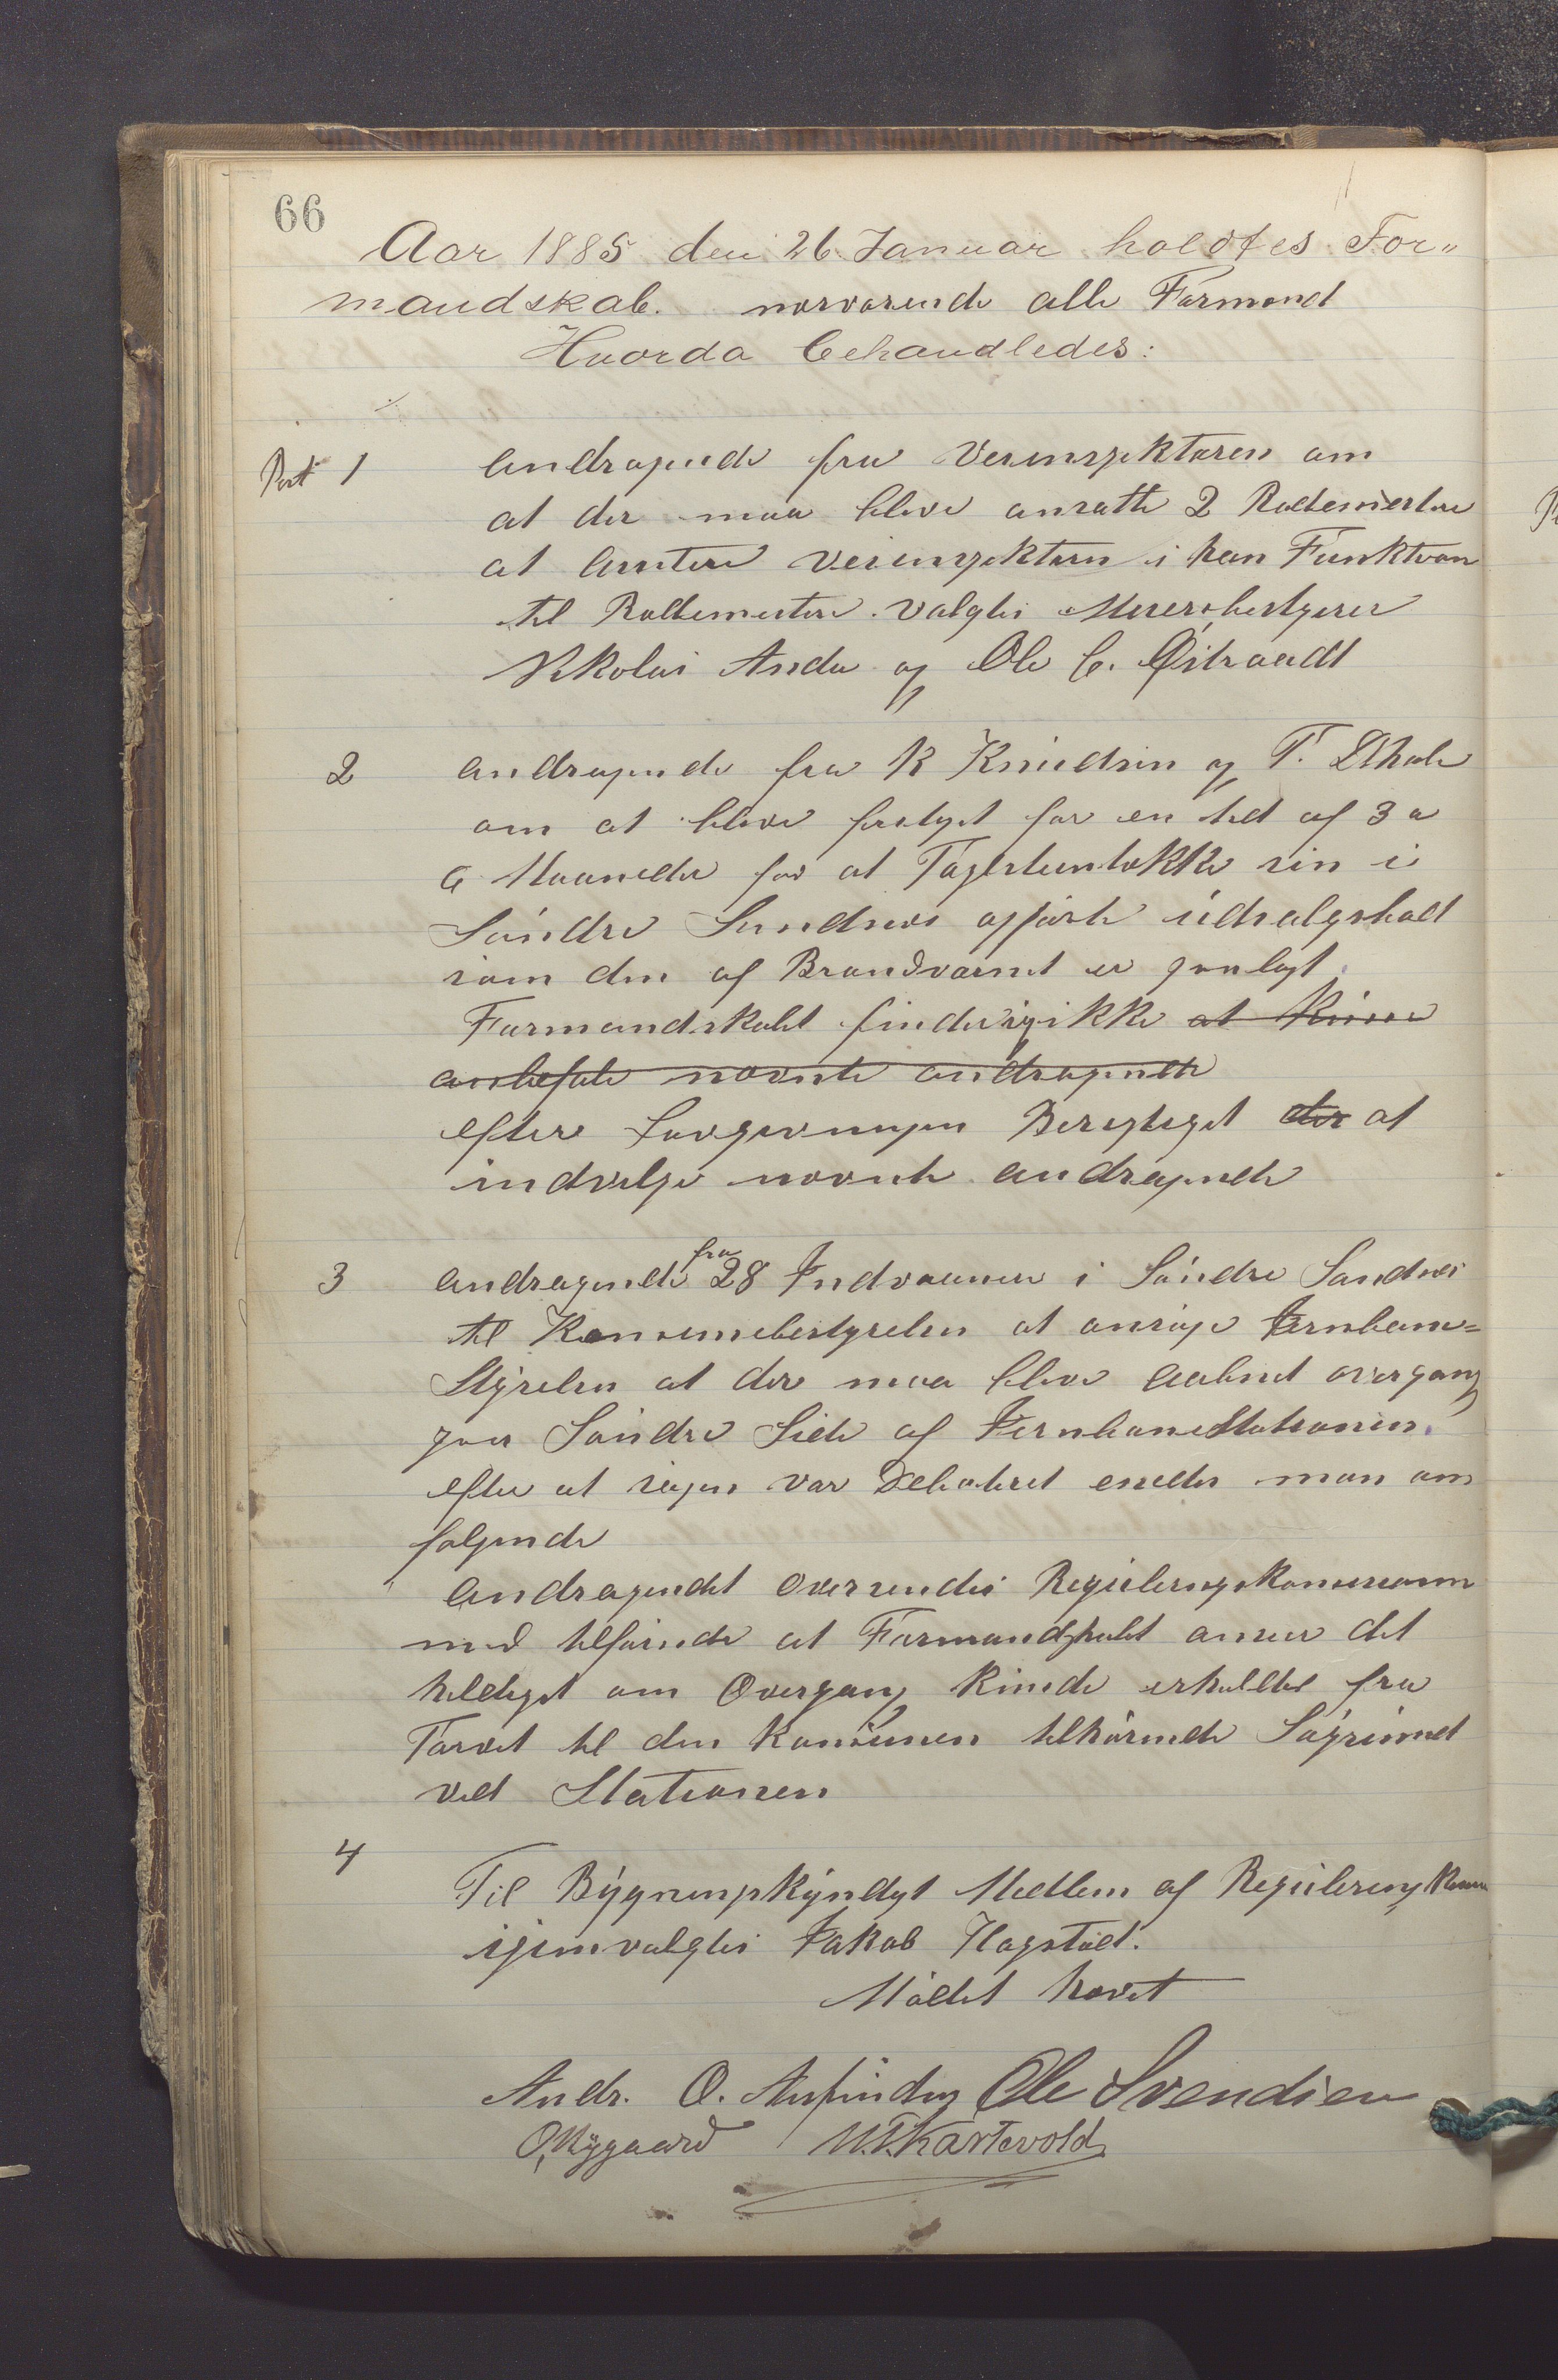 66
Aar 1885 den 26 Januar holdtes For„
mandskab. nærværende alle Formænd
Hvorda behandledes:
Post 1 Andragende fra Veiinspektøren om
at der maa blive ansatte 2 Rodemestere
at assistere Veiinspektøren i han Funktion
til Rodemestere valgtes Meieribestyrer
Nikolai Anda og Ole C. Østraadt
2 Andragende fra K Knudsen og T. Dthale
om at blive fretaget for en tid af 3 a
6 Maaneder for at Taglstentække sin i
Søndre Sandnes opførte udsalgsbod
som dem af Brandvæsnet er paalagt.
Formandskabet finder sig ikke at kunne
anbefale nævnte andragende
efter Lovgivningen Beregtiget der at
indvilge nævnte andragende
3 Andragende fra 28 Indvaanere i Søndre Sandnes
til Komunebestyrelsen at ansøge Jernbane=
Styrelsen at der maa blive aabnet overgang
paa Søndre Side af Jernbanestationen.
efter at sagen var Debateret enedes man om
følgende
" Andragendet oversendes Reguleringskomisionen
med tilføiende at Formandskabet anser det
heldigst om Overgang kunde erholdes fra
Torvet til den Komunen tilhørende Søgrund
ved Stationen
4
Til Bygningskyndigt Medlem af Regulerings Komm
igjenvalgtes Jakob Hagstad.
Mødet hævet
Andr. O. Ole Svendsen
O. Nygaard M. T. Kartevold